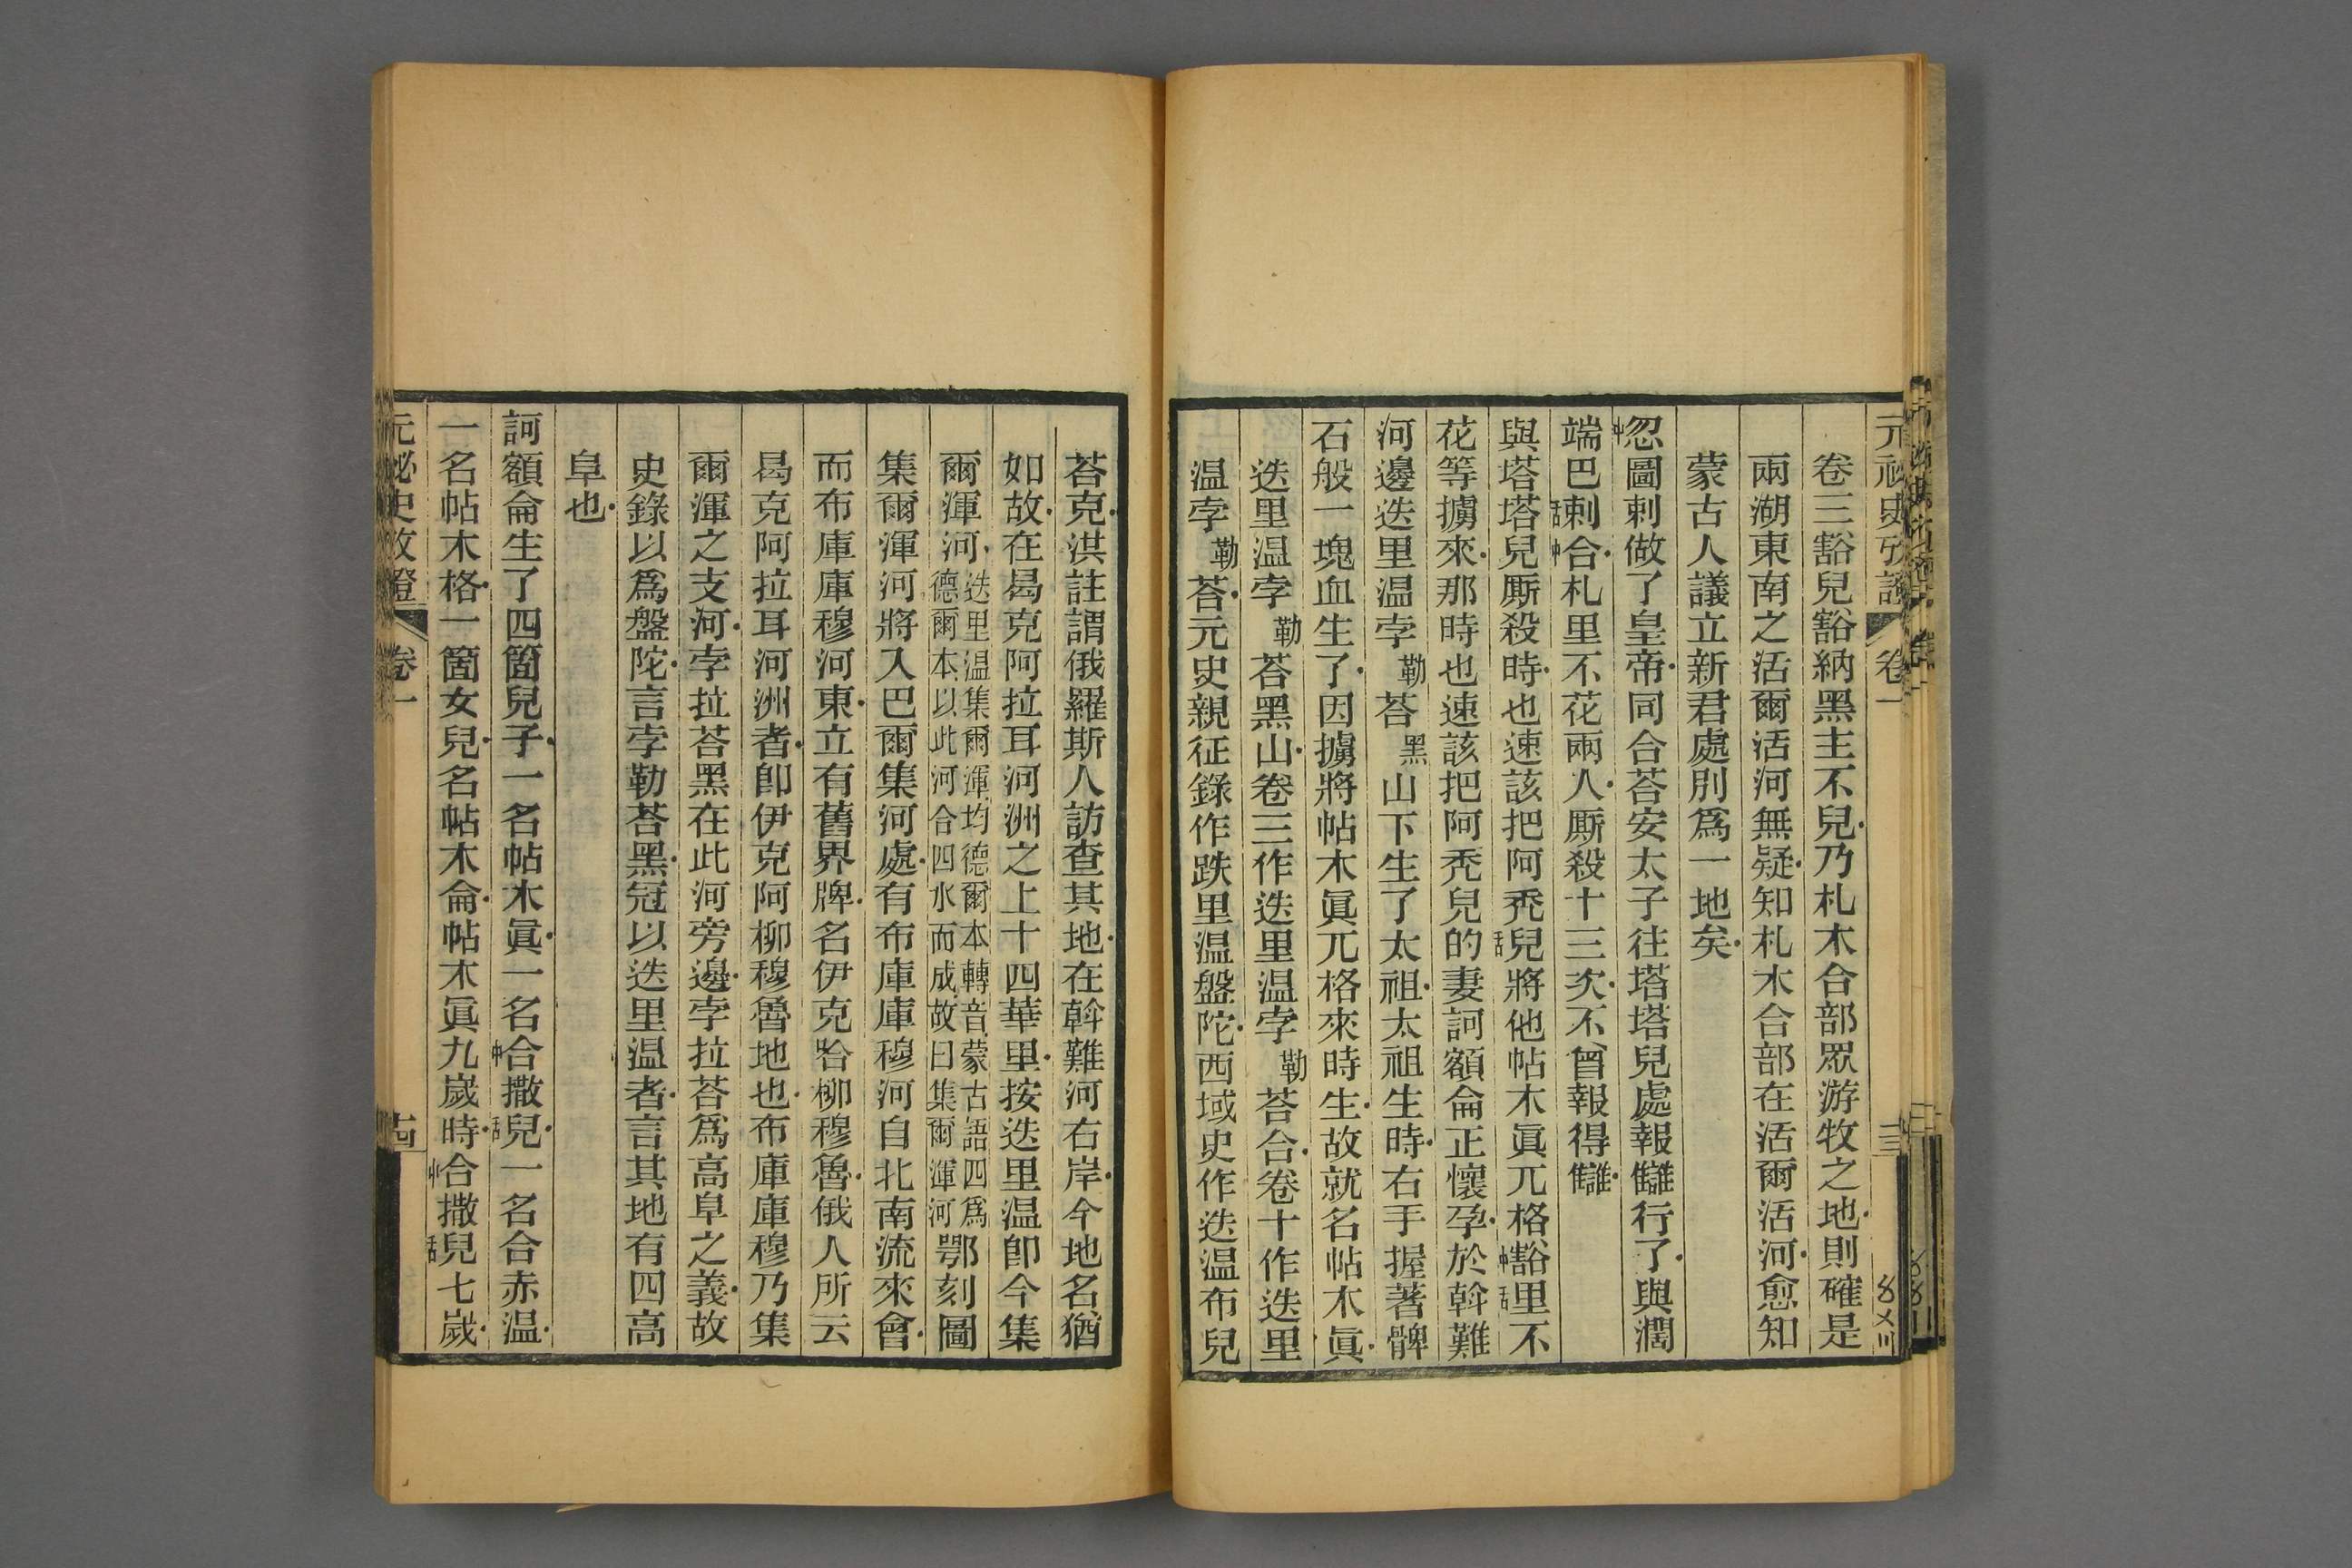 元祕史攷證 卷一
卷三豁兒豁納黑主不兒乃札木合部眾游牧之地則確是
兩湖東南之活爾活河無疑知札木合部在活爾活河愈知
蒙古人議立新君處別爲一地矣
忽中圖剌做了皇帝同合荅安太子往塔塔兒處報讎行了與濶
端巴剌舌合中札里不花兩人厮殺十三次不曾報得讎
與塔塔兒厮殺時也速該把阿禿兒舌將他帖木眞兀格豁中里舌不
花等擄來那時也速該把阿禿兒的妻訶額侖正懷孕於斡難
河邊迭里温孛勒荅黑山下生了太祖太祖生時右手握著髀
石般一塊血生了因擄將帖木眞兀格來時生故就名帖木眞
迭里温孛勒荅黑山卷三作迭里温孛勒荅合卷十作迭里
温孛勒荅元史親征錄作跌里温盤陀西域史作迭温布兒
荅克洪註謂俄羅斯人訪查其地在斡難河右岸今地名猶
如故在曷克阿拉耳河洲之上十四華里按迭里温卽今集
爾渾河迭里温集爾渾均德爾本轉音蒙古語四爲德爾本以此河合四水而成故曰集爾渾河鄂刻圖
集爾渾河將入巴爾集河處有布庫庫穆河自北南流來會
而布庫庫穆河東立有舊界牌名伊克哈柳穆魯俄人所云
曷克阿拉耳河洲者卽伊克阿柳穆魯地也布庫庫穆乃集
爾渾之支河孛拉荅黑在此河旁邊孛拉荅爲高阜之義故
史錄以爲盤陀言孛勒荅黑冠以迭里温者言其地有四高
阜也
訶額侖生了四箇兒子一名帖木眞一名合中撒兒舌一名合赤温
一名帖木格一箇女兒名帖木侖帖木眞九嵗時合中撒兒舌七嵗
元祕史攷證 卷一 十四